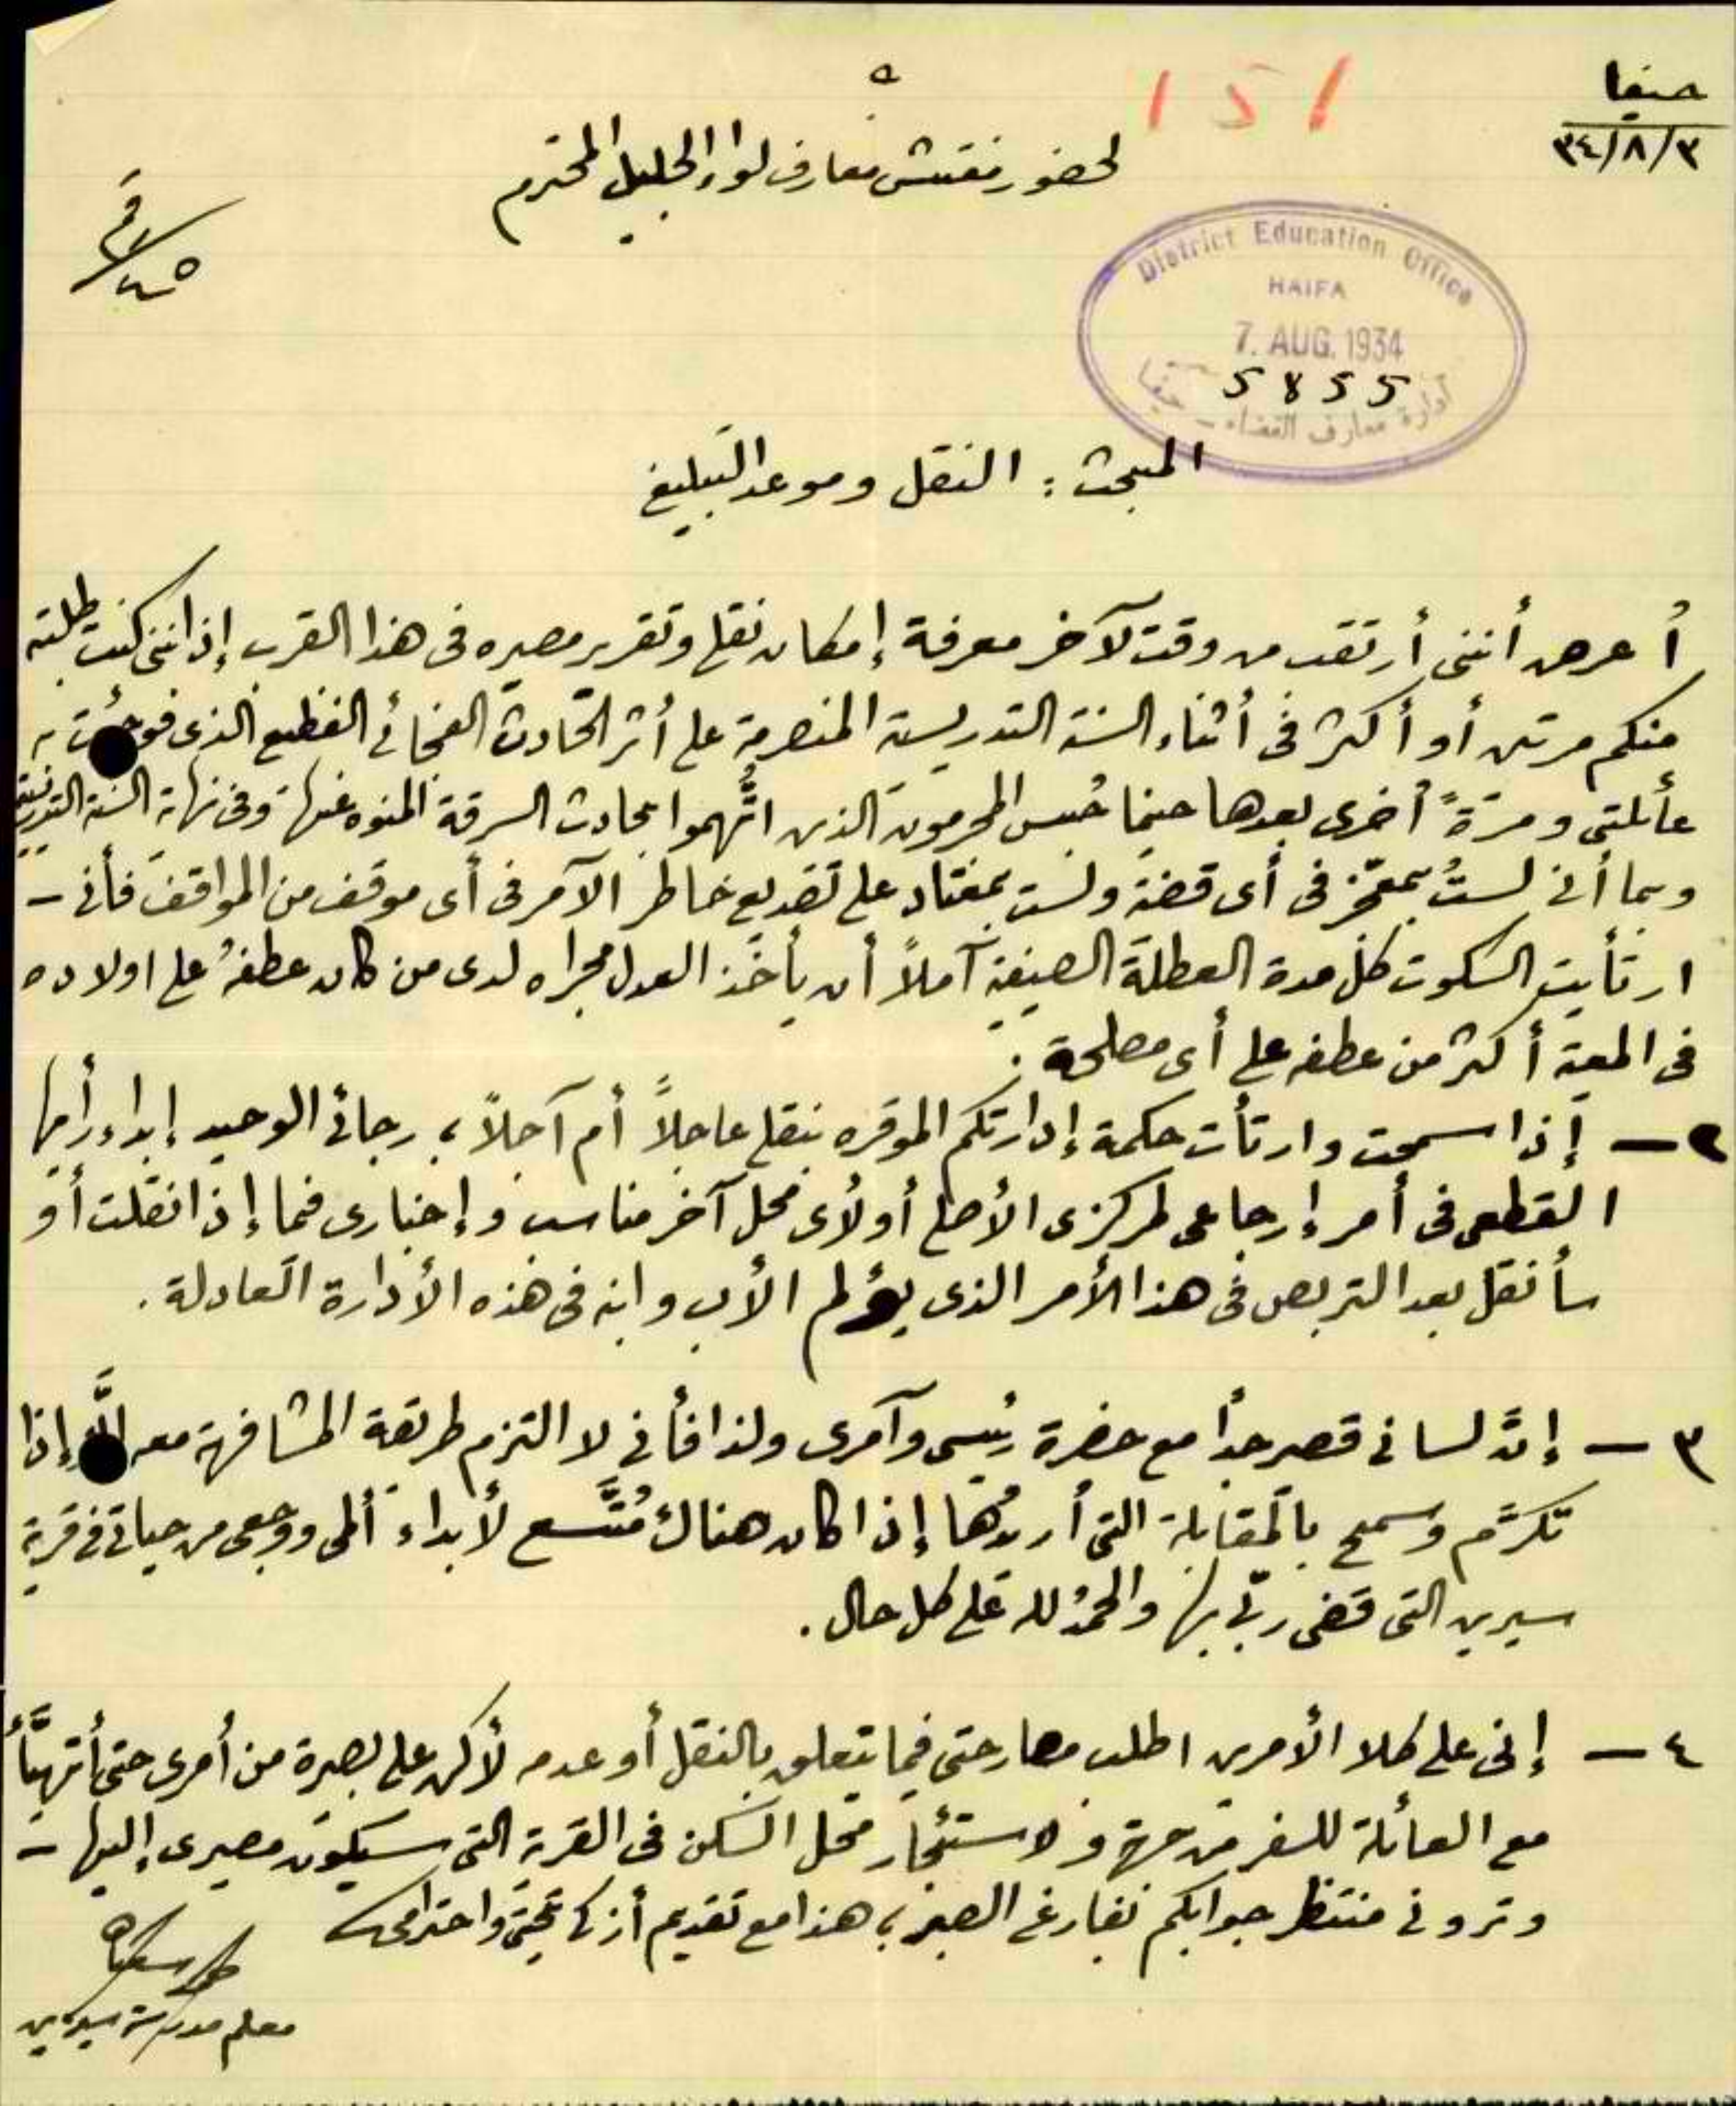 حيفا
٣٤/٨/٣
151
لحضور مفتش معارف لواء الجليل المحترم
District Education Office
HAIFA
7. AUG. 1934
5855
ادارة معارف القضاء - حيفا
المبحث : النقل وموعد التبليغ
أعرض أنني أرتقب من وقت لآخر معرفة إمكان نقلي وتقرير مصيره في هذا القرب إذ انني كنت طلبته
منكم مرتين أو أكثر في أثناء السنة التدريسية المنصرمة على أثر الحادث الفجائي الفظيع الذي فوجئت به
عائلتي ومرّةً أخرى بعدها حينما حُبس المجرمون الذين اتُّهموا بحادث السرقة المنوه عنها وفي نهاية السنة التدريسية
وبما أني لستُ بمتحيّز في أي قضية ولست بمعتاد على تصديع خاطر الآمر في أي موقف من المواقف فأني -
ارتأيت السكوت كلّ مدة العطلة الصيفية آملاً أن يأخذ العدل مجراه لدى من كان عطفهُ على اولاده
في المعية أكثر من عطفه على أي مصلحة .
٢ - إذا سمحت وارتأت حكمة إدارتكم الموقره بنقلي عاجلاً أم آجلاً ، رجائي الوحيد إبداء رأيها
القطعي في أمر إرجاعي لمركزي الأصلي أو لأي محل آخر مناسب وإخباري فيما إذا نقلت أو
سأنقل بعد التربص في هذا الأمر الذي يؤلم الأب وابنه في هذه الأدارة العادلة .
٣ - إنَّ لساني قصير جداً مع حضرة رئيسي وآمري ولذا فأني لا التزم طريقة المشافهة معه إلاَّ إذا
تكرَّم وسمح بالمقابلة التي أريدُها إذا كان هناك مُتَّسع لأبداء ألمي ووجعي من حياتي في قرية
سيرين التي قضى ربّي بها والحمدُ لله على كل حال .
٤ - إني على كلا الأمرين اطلب مصارحتي فيما يتعلق بالنقل أو عدمه لأكن على بصيرة من أمري حتى أتهيَّأ
مع العائلة للسفر من جهة ولاستئجار محل السكن في القرية التي سيكون مصيري إليها -
وتروني منتظر جوابكم بفارغ الصبر ، هذا مع تقديم أزكى تحيتي واحترامي
معلم مدرسة سيرين